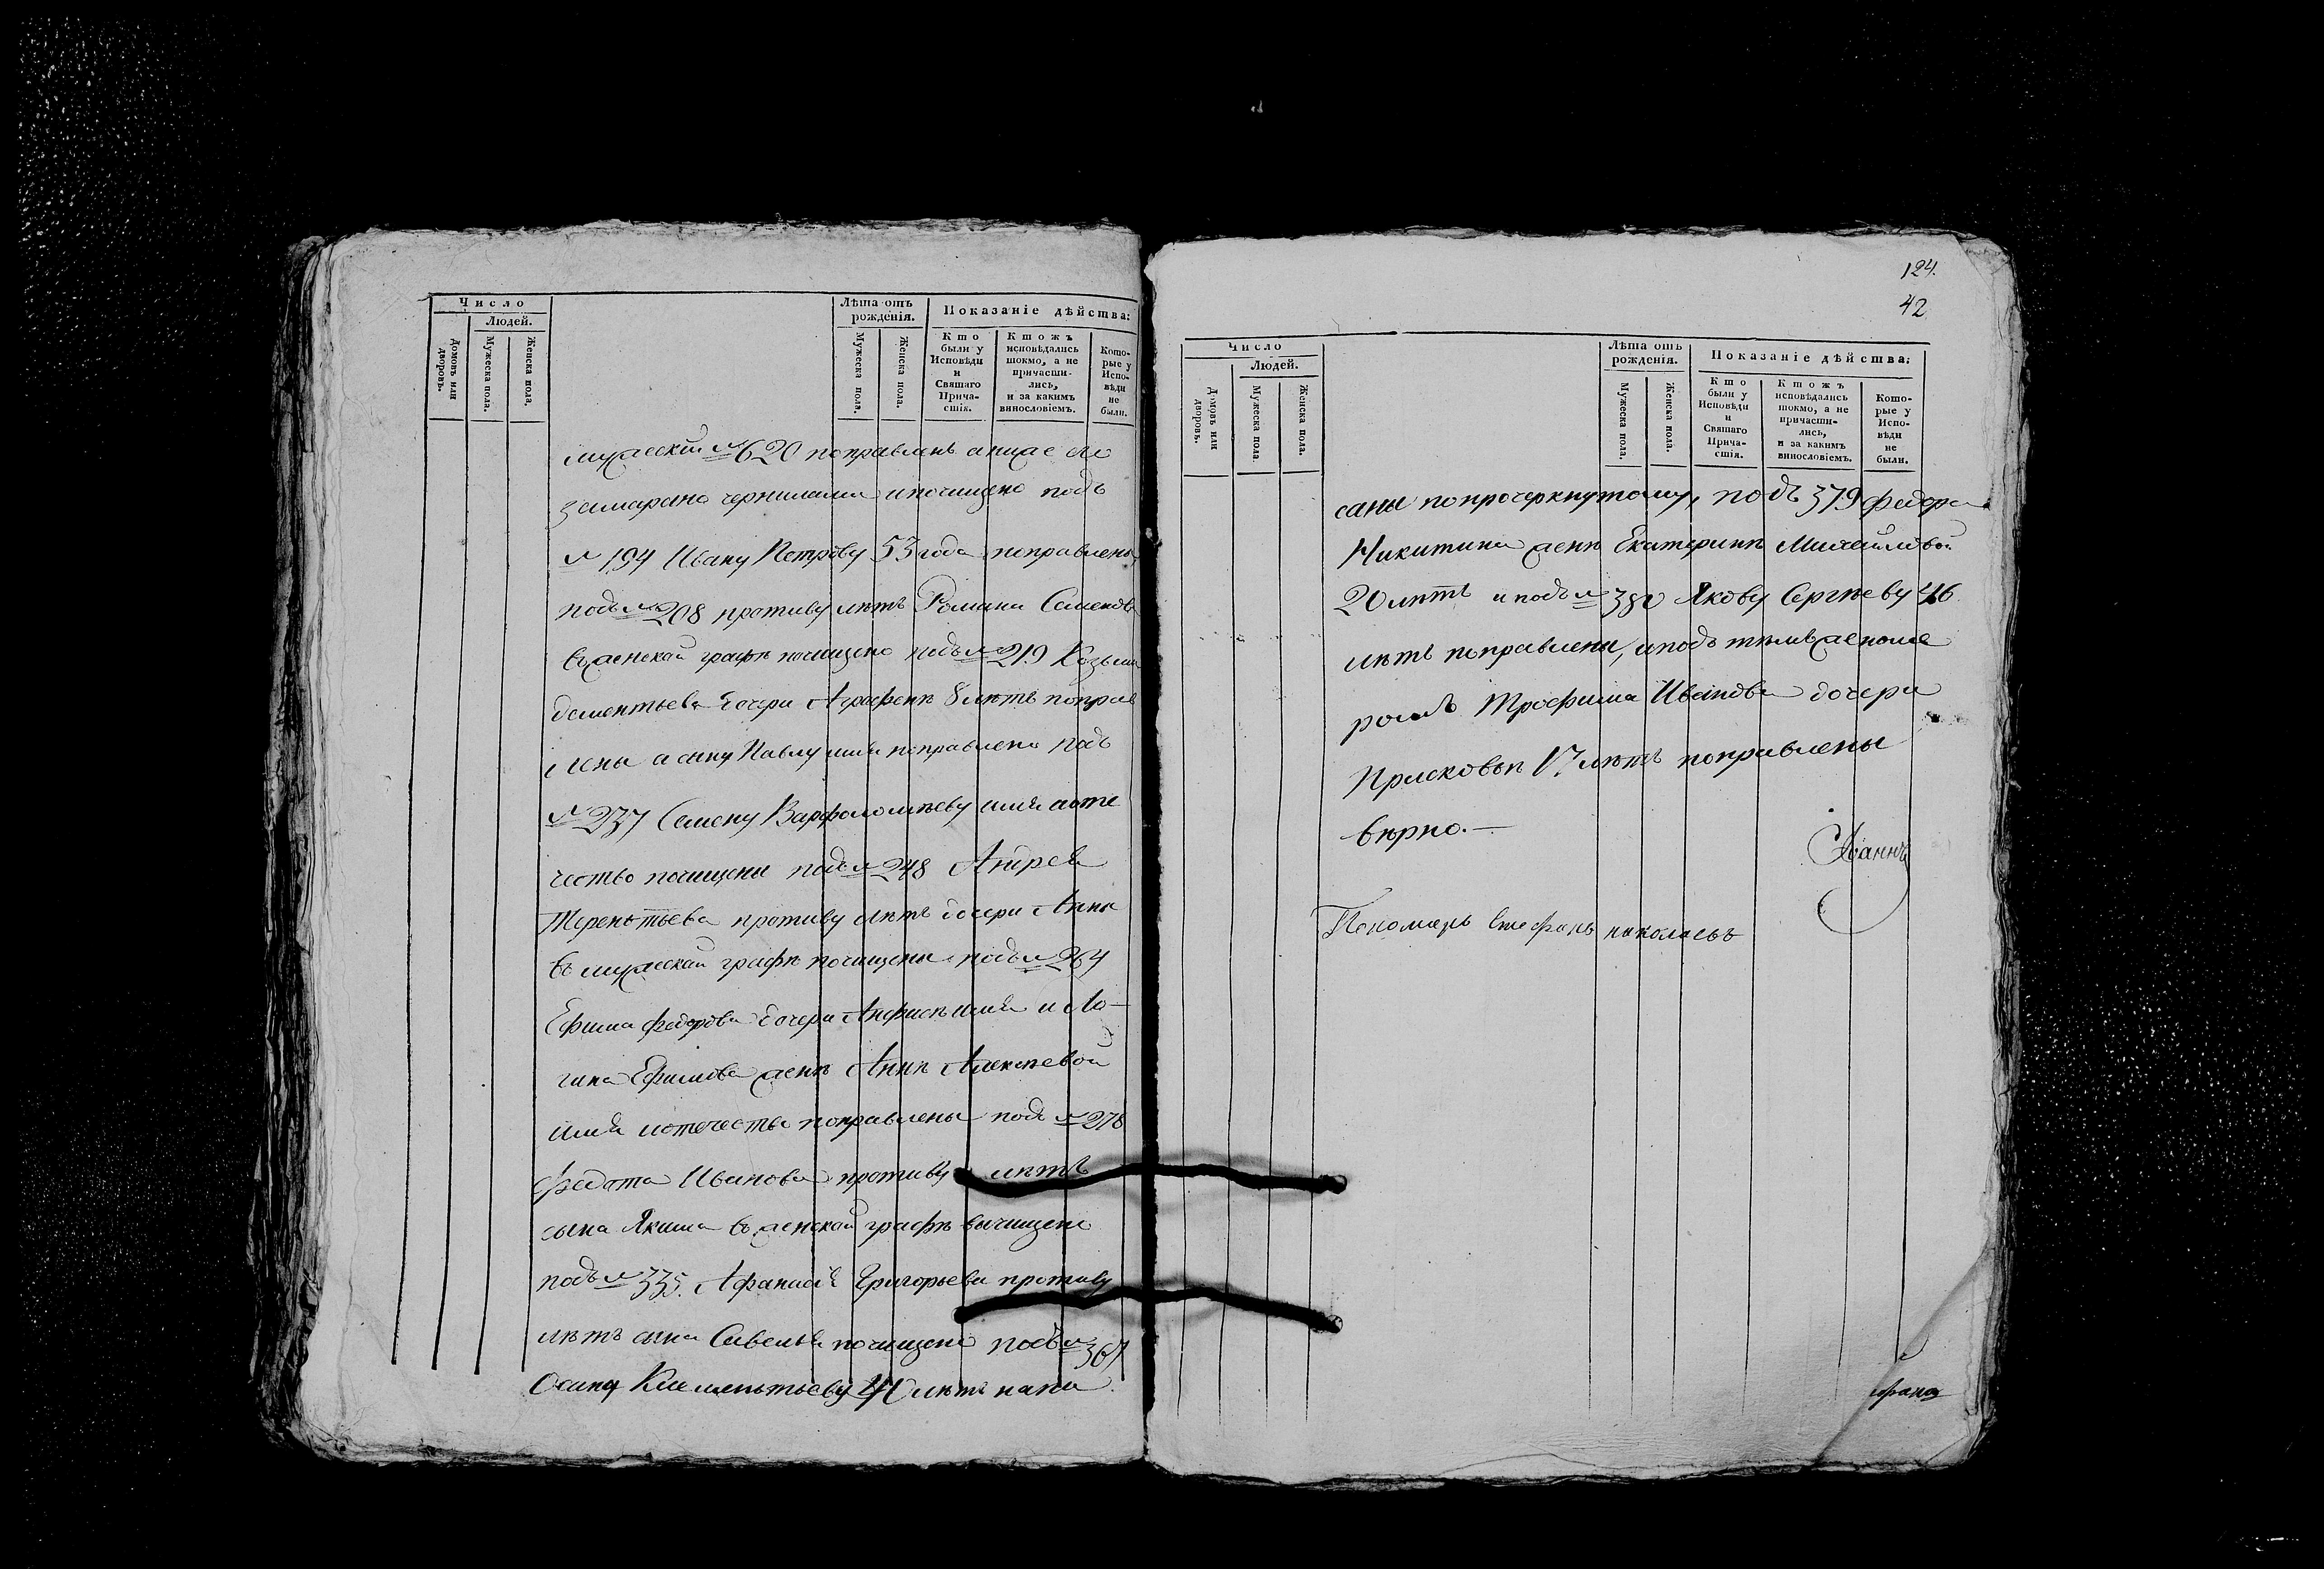 Число
Людей.
Домовъ или дворовъ.
Мужеска пола.
Женска пола.
Лѣта отъ рожденія.
Мужеска пола.
Женска пола.
Показаніе дѣйства:
Кто были у Исповѣди и Святаго Причастія.
Ктожъ исповѣдались токмо, а не причастились, и за какимъ винословіемъ.
Которые у Исповѣди не были.
мужескій № 620 поправленъ а ниже
замарано чернилами и почищено подъ
№ 194 Ивану Петрову 53 года поправлены
подъ № 208 противу лѣтъ Романа Семенова
въ женской графѣ почищено подъ № 219 Козьмы
дементьева дочери Аграфенѣ 8 лѣтъ поправ
лены а сыну Павлу имя поправлено подъ
№ 237 Семену Варфоломѣеву имя и оте
чество почищены подъ № 248 Андрея
Терентьева противу лѣтъ дочери Анны
въ мужеской графѣ почищены подъ № 264
Ефима федорова дочери Анфисѣ имя и Ло-
гина Ефимова женѣ Аннѣ Алексѣевой
имя и отечество поправлены подъ № 278
федота Иванова противу лѣтъ
сына Якима въ женской графѣ вычищено
подъ № 335. Афанасія Григорьева противу
лѣтъ сына Савелья почищено подъ № 367
Осипу Клементьеву 40 лѣтъ напи
124.
42
Число
Людей.
Домовъ или дворовъ.
Мужеска пола.
Женска пола.
Лѣта отъ рожденія.
Мужеска пола.
Женска пола.
Показаніе дѣйства:
Кто были у Исповѣди и Святаго Причастія.
Ктожъ исповѣдались токмо, а не причастились, и за какимъ винословіемъ.
Которые у Исповѣди не были.
саны по прочеркнутому, подъ 379 федора
Никитина женѣ Екатеринѣ Михайловой
20 лѣтъ и подъ № 380 Якову Сергѣеву 46
лѣтъ поправлены, и подъ тѣмъ же номе
ромъ Трофима Иванова дочери
Прасковьѣ 17 лѣтъ поправлены
вѣрно.—
Іоаннъ
Пономарь Стефанъ николаевъ